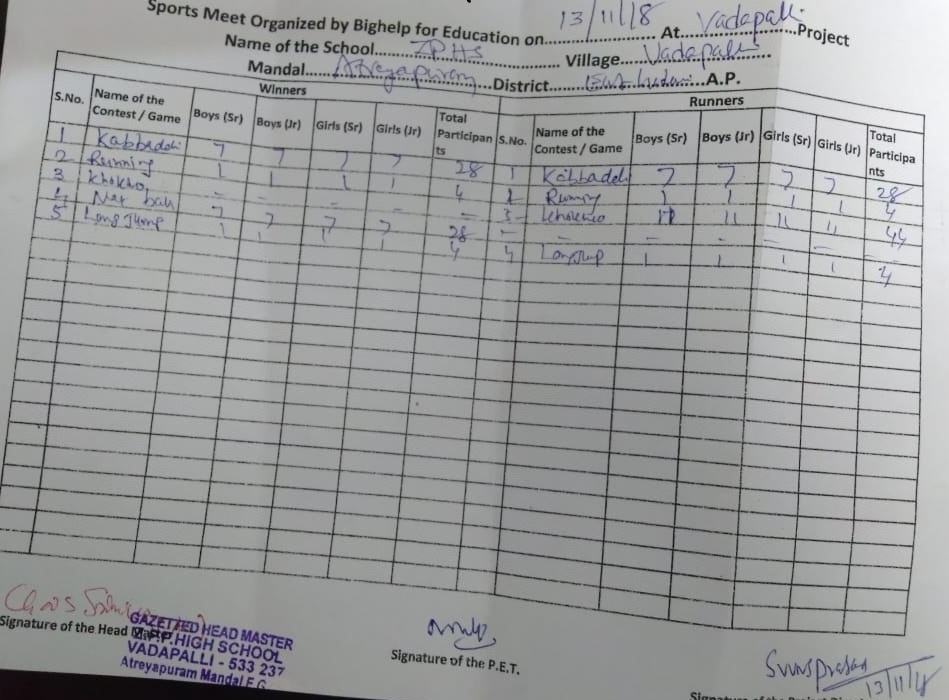 Sports Meet Organized by Bighelp for Education on 13/11/18 At Vadapalli Project
Name of the School ZPHS Village Vadapalli
Mandal Atreyapuram District East Godavari A.P.
Winners Runners
S.No. Name of the Contest / Game Boys (Sr) Boys (Jr) Girls (Sr) Girls (Jr) Total Participan ts S.No. Name of the Contest / Game Boys (Sr) Boys (Jr) Girls (Sr) Girls (Jr) Total Participa nts
1 Kabbaddi 7 7 7 7 28 1 Kabbaddi 7 7 7 7 28
2 Running 1 1 1 1 4 2 Runing 1 1 1 1 4
3 Khokho - - - - - 3 Khokho 11 11 11 11 44
4 Net ball 7 7 7 7 28 - - - - - -
5 Long Jump 1 1 1 1 4 4 Longjup 1 1 1 1 4
Signature of the Head
GAZETTED HEAD MASTER
Z.P.P. HIGH SCHOOL
VADAPALLI - 533 237
Atreyapuram Mandal E.G.
Signature of the P.E.T.
13/11/18